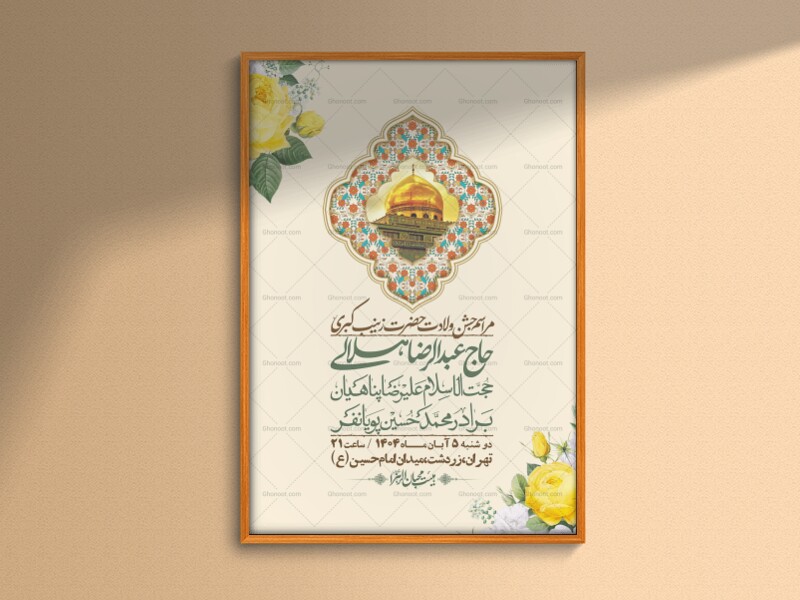 مراسم جشن ولادت حضرت زینب کبری
حاج عبدالرضا هلالی
حجت الاسلام علیرضا پناهیان
برادر محمدحسین پویانفر
دوشنبه ۵ آبان ماه ۱۴۰۴ / ساعت ۲۱
تهران، زردشت، میدان امام حسین (ع)
هیئت محبان الزهرا
Ghonoot.com